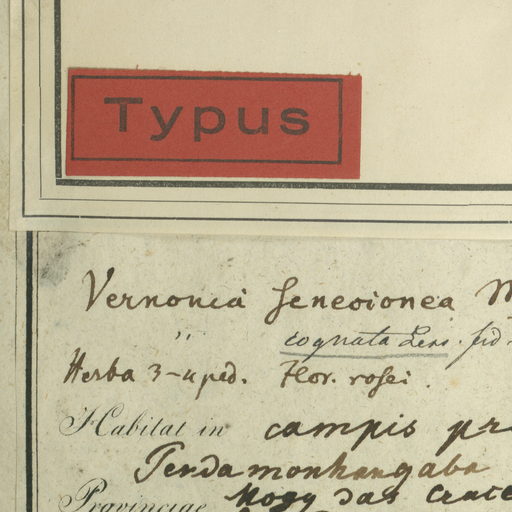 Typus
Vernonia senecionea M
" cognata Less. fid.
Herba 3-4 ped. Flor. rosei.
Habitat in campis pr
Pendamonhangaba
Provinciae Mogy das Cruce